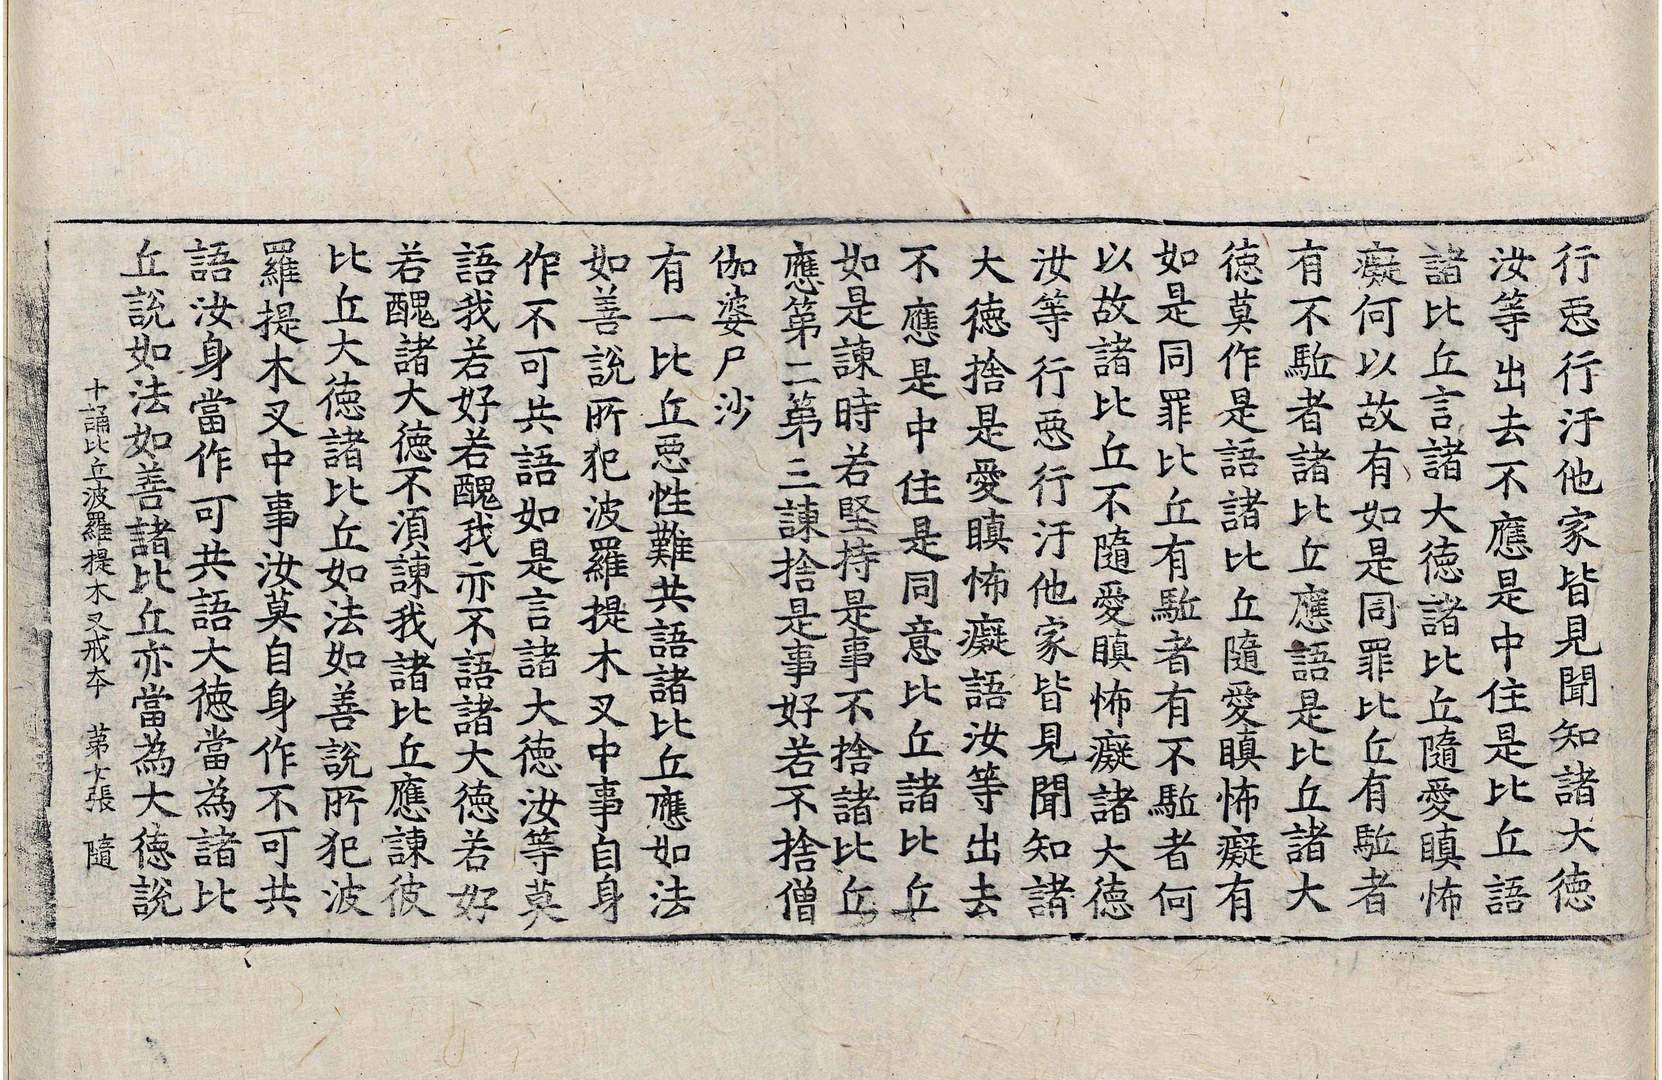 行惡行汙他家皆見聞知諸大徳
汝等出去不應是中住是比丘語
諸比丘言諸大徳諸比丘隨愛瞋怖
癡何以故有如是同罪比丘有駈者
有不駈者諸比丘應語是比丘諸大
徳莫作是語諸比丘隨愛瞋怖癡有
如是同罪比丘有駈者有不駈者何
以故諸比丘不隨愛瞋怖癡諸大徳
汝等行惡行汙他家皆見聞知諸
大徳捨是愛瞋怖癡語汝等出去
不應是中住是同意比丘諸比丘
如是諫時若堅持是事不捨諸比丘
應第二第三諫捨是事好若不捨僧
伽婆尸沙
有一比丘惡性難共語諸比丘應如法
如善說所犯波羅提木叉中事自身
作不可共語如是言諸大徳汝等莫
語我若好若醜我亦不語諸大徳若好
若醜諸大徳不湏諫我諸比丘應諫彼
比丘大徳諸比丘如法如善說所犯波
羅提木叉中事汝莫自身作不可共
語汝身當作可共語大徳當為諸比
丘說如法如善諸比丘亦當為大徳說
十誦比丘波羅提木叉戒夲　第七張　隨